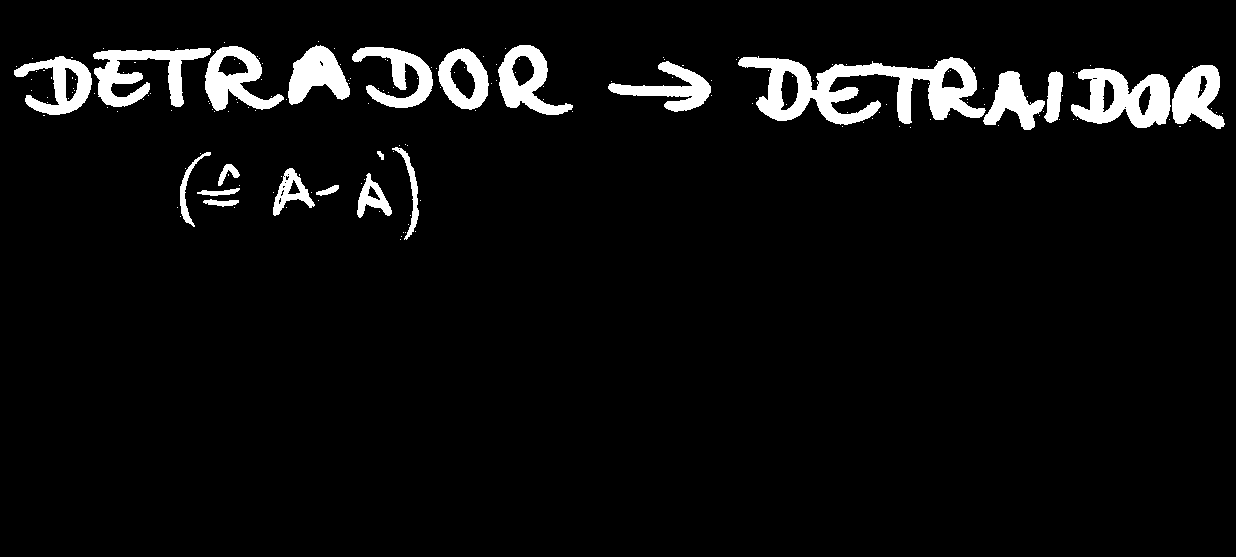 DETRADOR → DETRAIDOR
(≙ A-À)